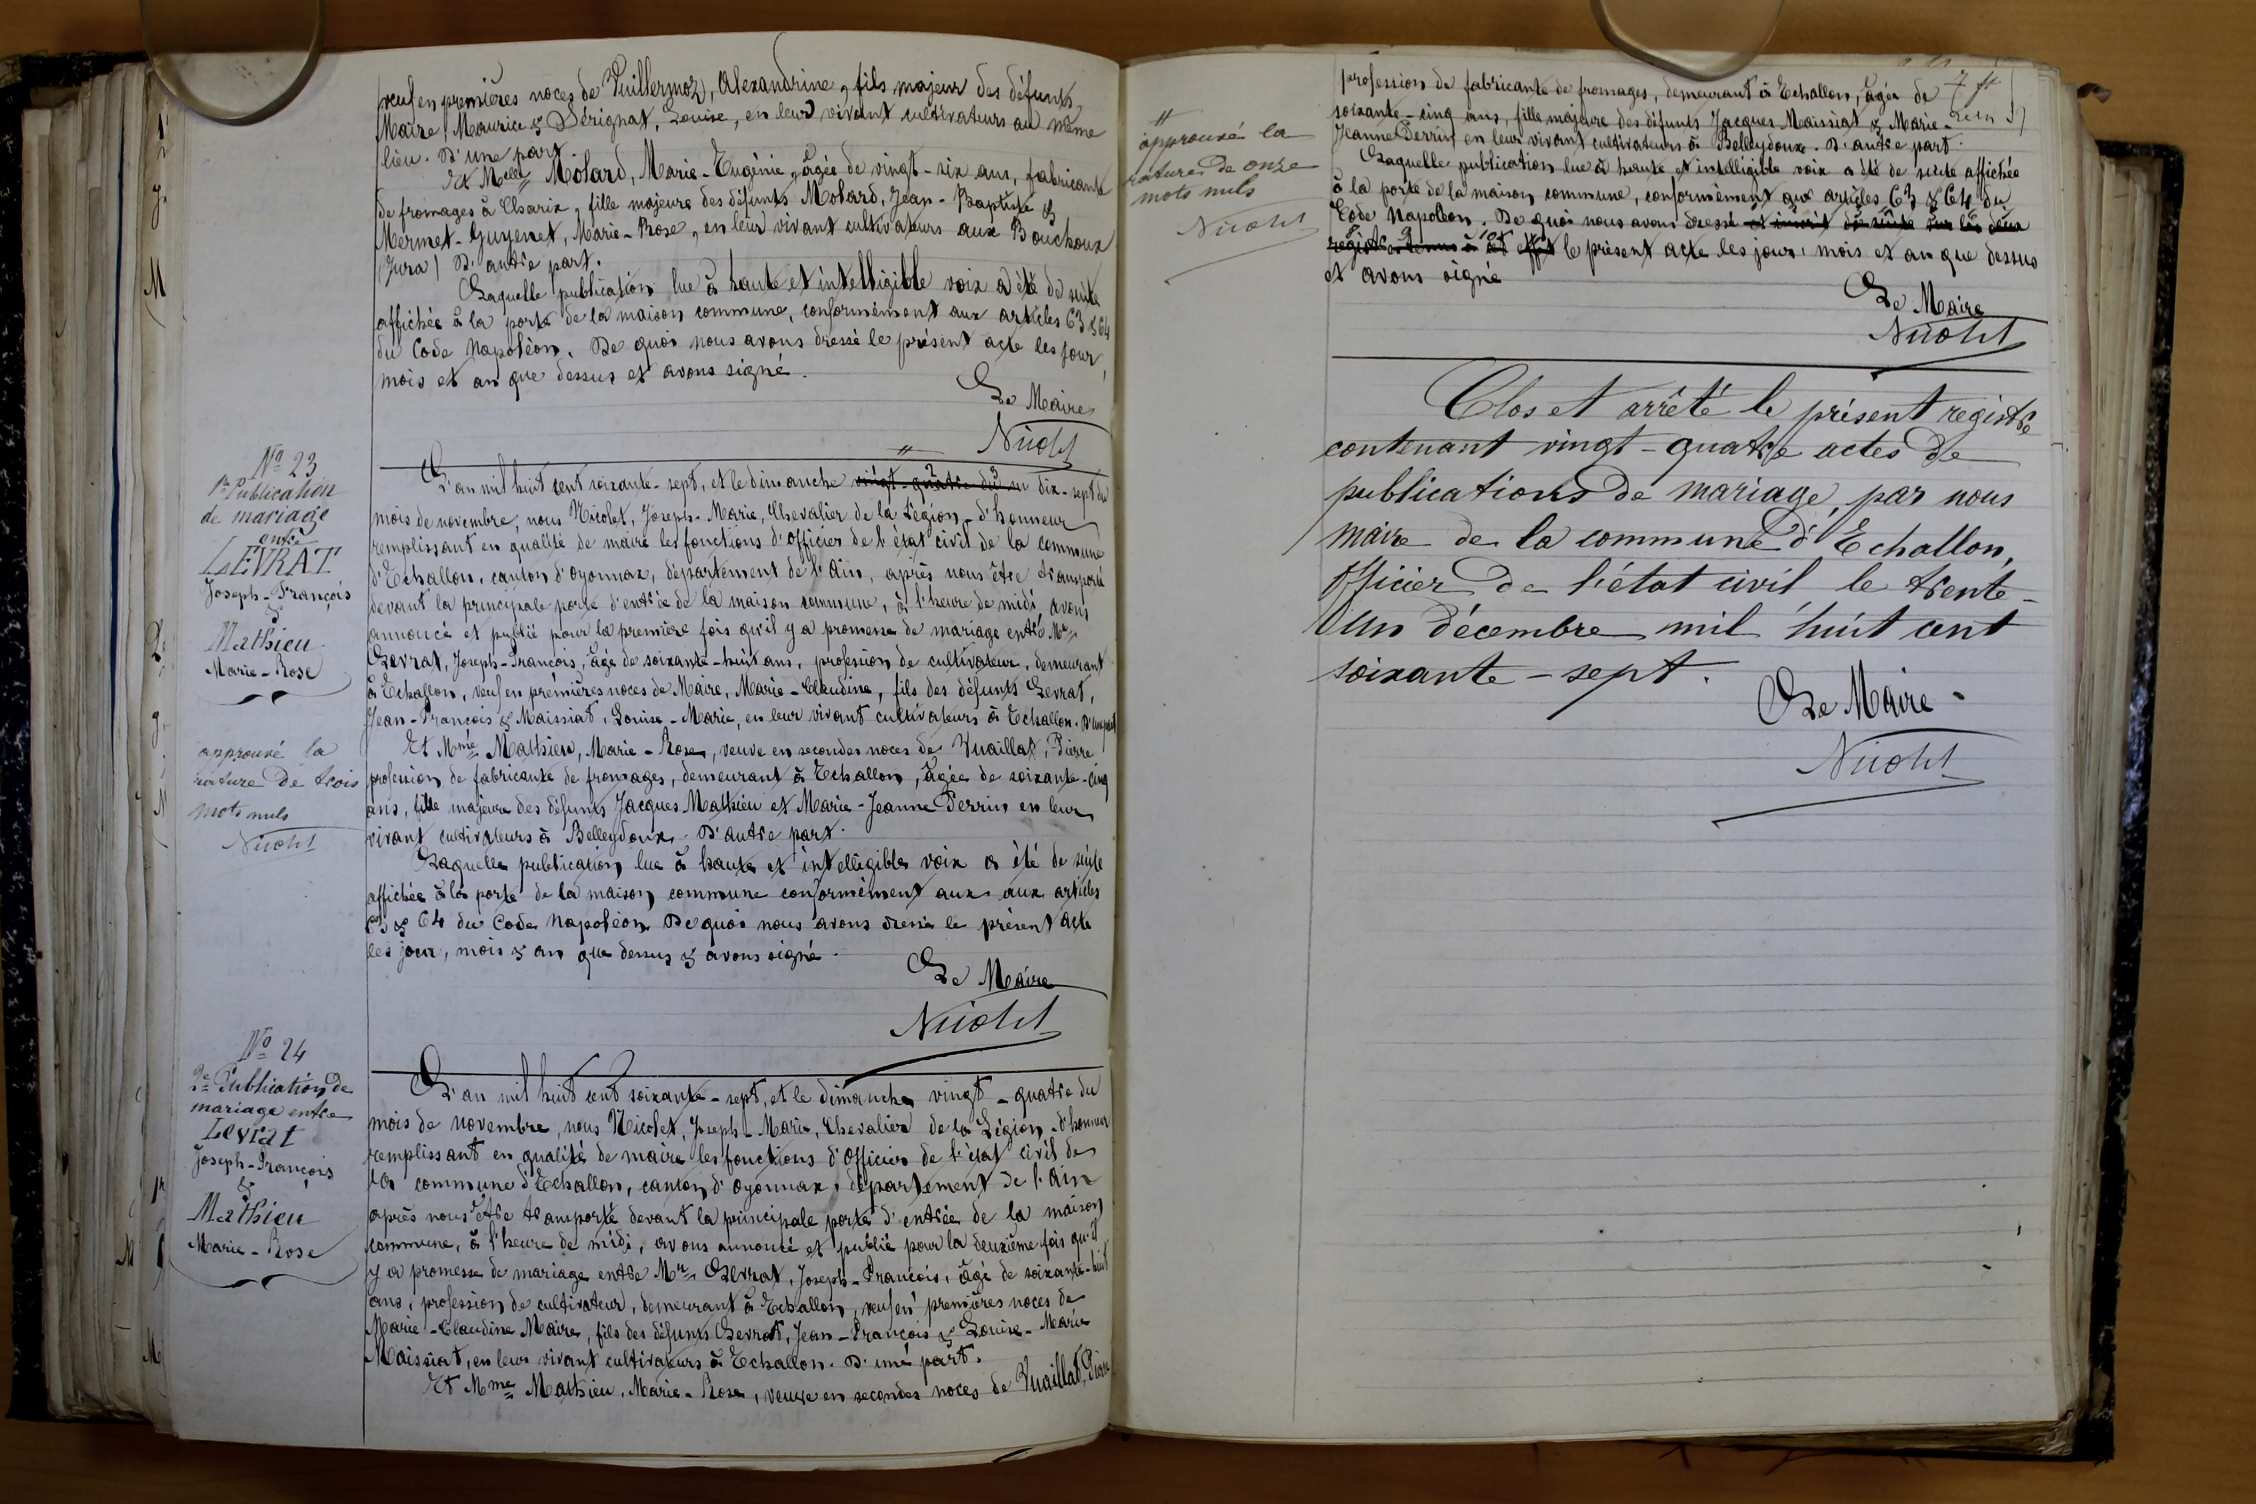 veuf en premières noces de Vuillermoz, Alexandrine, fils majeur des défunts
Maire Maurice & Sérignat, Louise, en leur vivant cultivateurs au même
lieu. D'une part.
Et Melle Molard, Marie-Eugénie, âgée de vingt-six ans, fabricante
de fromages à Charix, fille majeure des défunts Molard, Jean-Baptiste &
Mermet-Guyenet, Marie-Rose, en leur vivant cultivateurs aux Bouchoux
(Jura) D'autre part.
Laquelle publication lue à haute et intelligible voix a été de suite
affichée à la porte de la maison commune, conformément aux articles 63 & 64
du Code Napoléon. De quoi nous avons dressé le présent acte les jour,
mois et an que dessus et avons signé.
Le Maire
Nicolet
No 23
1re Publication
de mariage
entre
LEVRAT
Joseph-François
&
Mathieu
Marie-Rose
approuvé la
rature de trois
mots nuls
Nicolet
L'an mil huit cent soixante-sept, et le dimanche vingt-quatre du dix-sept du
mois de novembre, nous Nicolet, Joseph-Marie, Chevalier de la Légion-d'honneur
remplissant en qualité de maire les fonctions d'Officier de l'état civil de la commune
d'Echallon, canton d'Oyonnax, département de l'Ain, après nous être transporté
devant la principale porte d'entrée de la maison commune, à l'heure de midi, avons
annoncé et publié pour la première fois qu'il y a promesse de mariage entre Mr
Levrat, Joseph-François, âgé de soixante-huit ans, profession de cultivateur, demeurant
à Echallon, veuf en premières noces de Maire, Marie-Claudine, fils des défunts Levrat,
Jean-François & Maissiat, Louise-Marie, en leur vivant cultivateurs à Echallon. D'une part
Et Mme Mathieu, Marie-Rose, veuve en secondes noces de Vuaillat, Pierre
profession de fabricante de fromages, demeurant à Echallon, âgée de soixante-cinq
ans, fille majeure des défunts Jacques Mathieu et Marie-Jeanne Perrin en leur
vivant cultivateurs à Belleydoux. D'autre part.
Laquelle publication lue à haute et intelligible voix a été de suite
affichée à la porte de la maison commune conformément aux aux articles
63 & 64 du Code Napoléon De quoi nous avons dressé le présent acte
les jour, mois & an que dessus & avons signé.
Le Maire
Nicolet
No 24
2e Publication de
mariage entre
Levrat
Joseph-François
&
Mathieu
Marie-Rose
L'an mil huit cent soixante-sept, et le dimanche vingt-quatre du
mois de novembre, nous Nicolet, Joseph-Marie, Chevalier de la Légion-d'honneur
remplissant en qualité de maire les fonctions d'Officier de l'état civil de
la commune d'Echallon, canton d'Oyonnax, département de l'Ain
après nous être transporté devant la principale porte d'entrée de la maison
commune, à l'heure de midi, avons annoncé et publié pour la deuxième fois qu'il
y a promesse de mariage entre Mr Levrat, Joseph-François, âgé de soixante-huit
ans, profession de cultivateur, demeurant à Echallon, veuf en premières noces de
Marie-Claudine Maire, fils des défunts Levrat, Jean-François & Louise-Marie
Maissiat, en leur vivant cultivateurs à Echallon. D'une part.
Et Mme Mathieu, Marie-Rose, veuve en secondes noces de Vuaillat, Pierre
approuvé la
rature de onze
mots nuls
Nicolet
profession de fabricante de fromages, demeurant à Echallon, âgée de
soixante-cinq ans, fille majeure des défunts Jacques Maissiat & Marie-
Jeanne Perrin en leur vivant cultivateurs à Belleydoux. D'autre part.
Laquelle publication lue à haute et intelligible voix a été de suite affichée
à la porte de la maison commune, conformément aux articles 63 & 64 du
Code Napoléon. De quoi nous avons dressé et inscrit de suite sur les deux
registres tenus à cet effet le présent acte les jour, mois et an que dessus
et avons signé
Le Maire
Nicolet
Clos et arrêté le présent registre
contenant vingt-quatre actes de
publications de mariage, par nous
maire de la commune d'Echallon,
Officier de l'état civil le trente-
un décembre mil huit cent
soixante-sept.
Le Maire
Nicolet